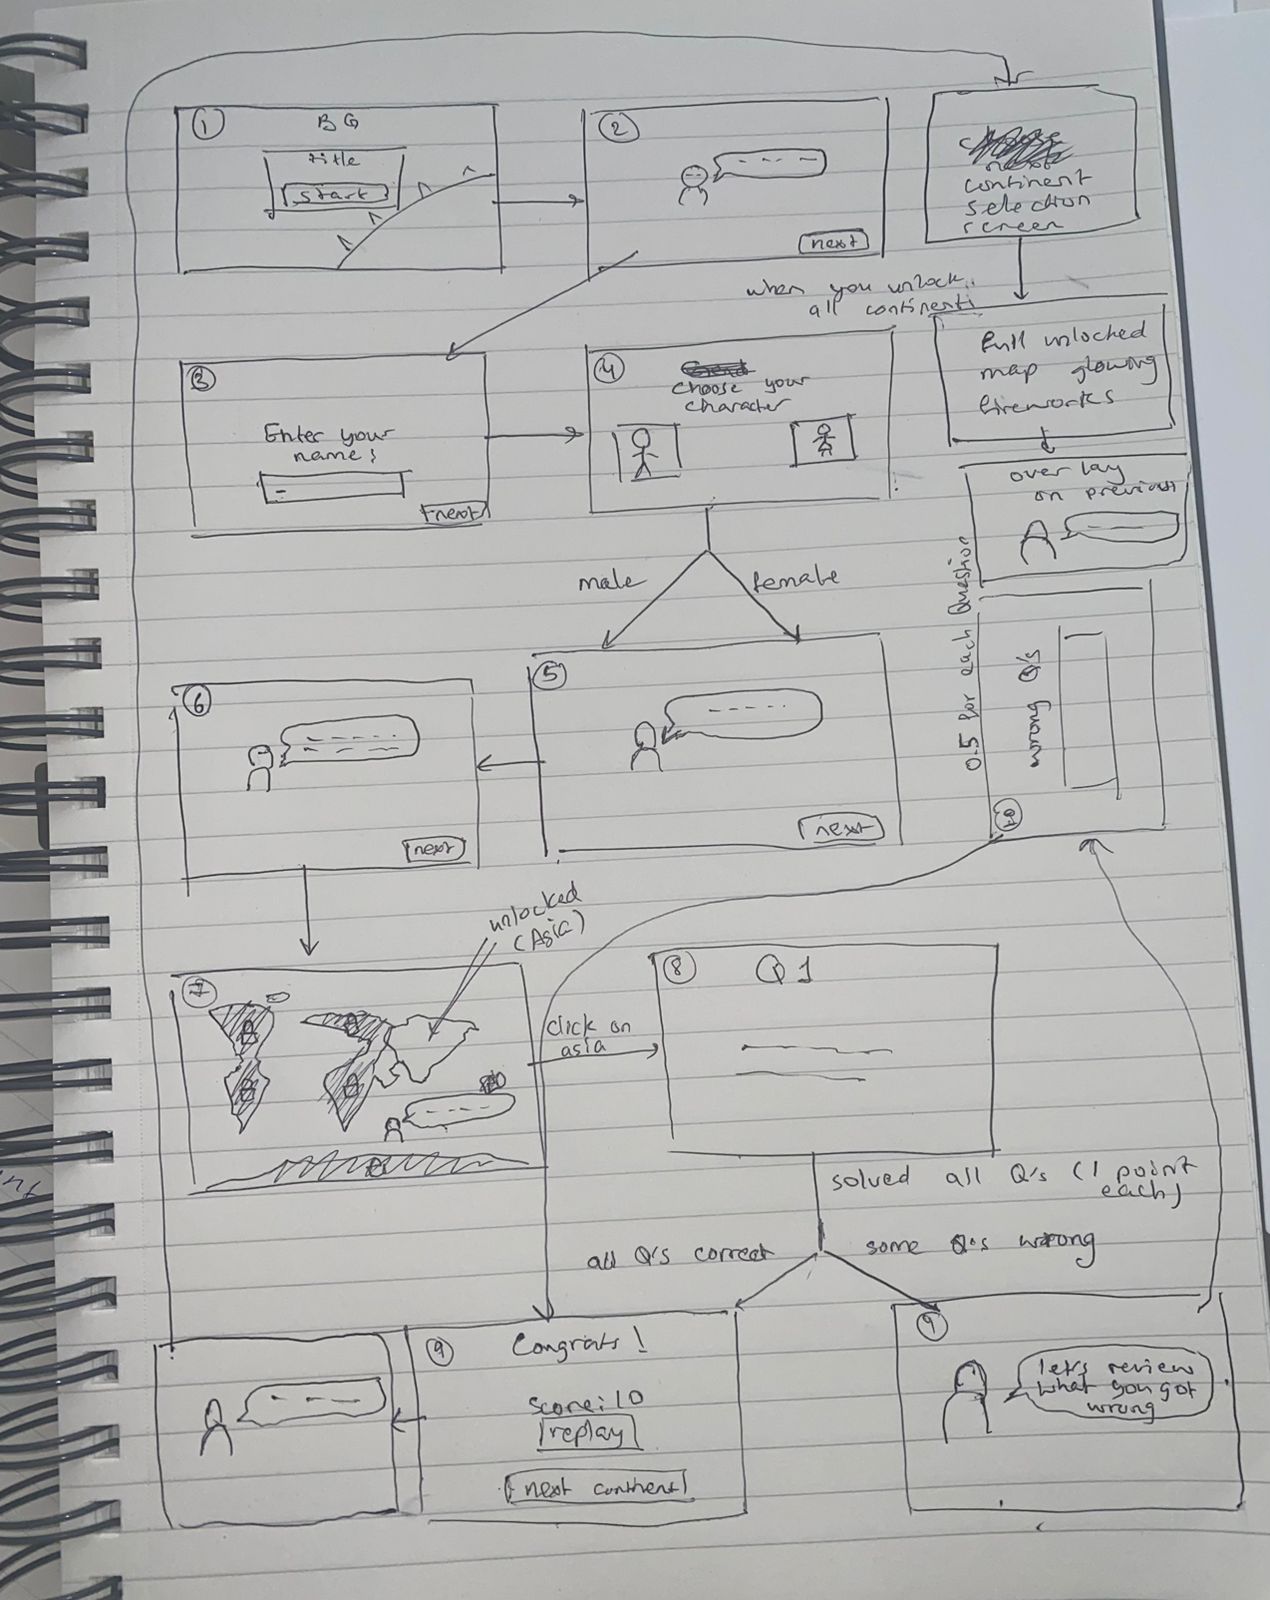 1
BG
title
start
2
next
next
continent
selection
screen
when you unlock
all continents
full unlocked
map glowing
fireworks
overlay
on previous
3
Enter your
name:
next
4
choose your
character
male
female
5
next
6
next
0.5 for each Question
wrong Q's
unlocked
(Asia)
7
click on
asia
8
Q1
solved all Q's (1 point
each)
all Q's correct
some Q's wrong
9
Congrats!
score: 10
replay
next continent
9
let's review
what you got
wrong